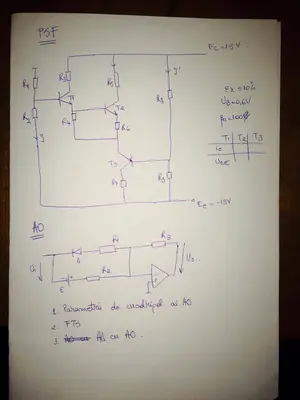 PSF
Ec=15V
R1
R3
R5
T1
T2
R8
R2
R4
R6
T3
R7
R9
Ec=-15V
EX ±10%
UB=0,6V
T1 T2 T3
ic
UCE
AO
R1
R3
Ui
D
E
R2
U0
1. Parametrii de cuadripol ai AO
2. FTS
3. AU cu AO.